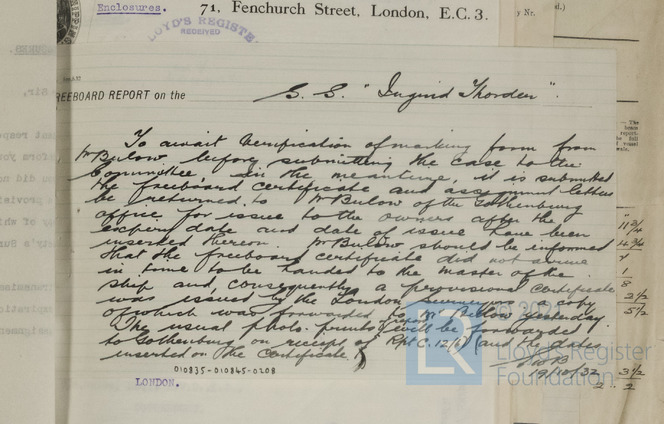 Enclosures.
71, Fenchurch Street, London, E.C.3.
LLOYD'S REGISTE
RECEIVED
REEBOARD REPORT on the
S. S. "Ingrid Thorden".
To await verification of marking form from
Mr Bulow, before submitting the case to the
Committee, in the meantime, it is submitted
the freeboard certificate and assignment letters
be returned to Mr Bulow of the Gothenburg
office for issue to the owners after the
expiry date and date of issue have been
inserted thereon. Mr Bulow should be informed
that the freeboard certificate did not arrive
in time to be handed to the master of the
ship and, consequently a provisional certificate
was issued by the London Surveyors a copy
of which was forwarded to Mr Bulow yesterday.
The usual photo. prints will be forwarded
to Gothenburg on receipt of report Rpt C. 12/ (and the dates
inserted on the certificate.)
19/10/32
010835-010845-0208
LONDON.
Lloyd's Register
Foundation